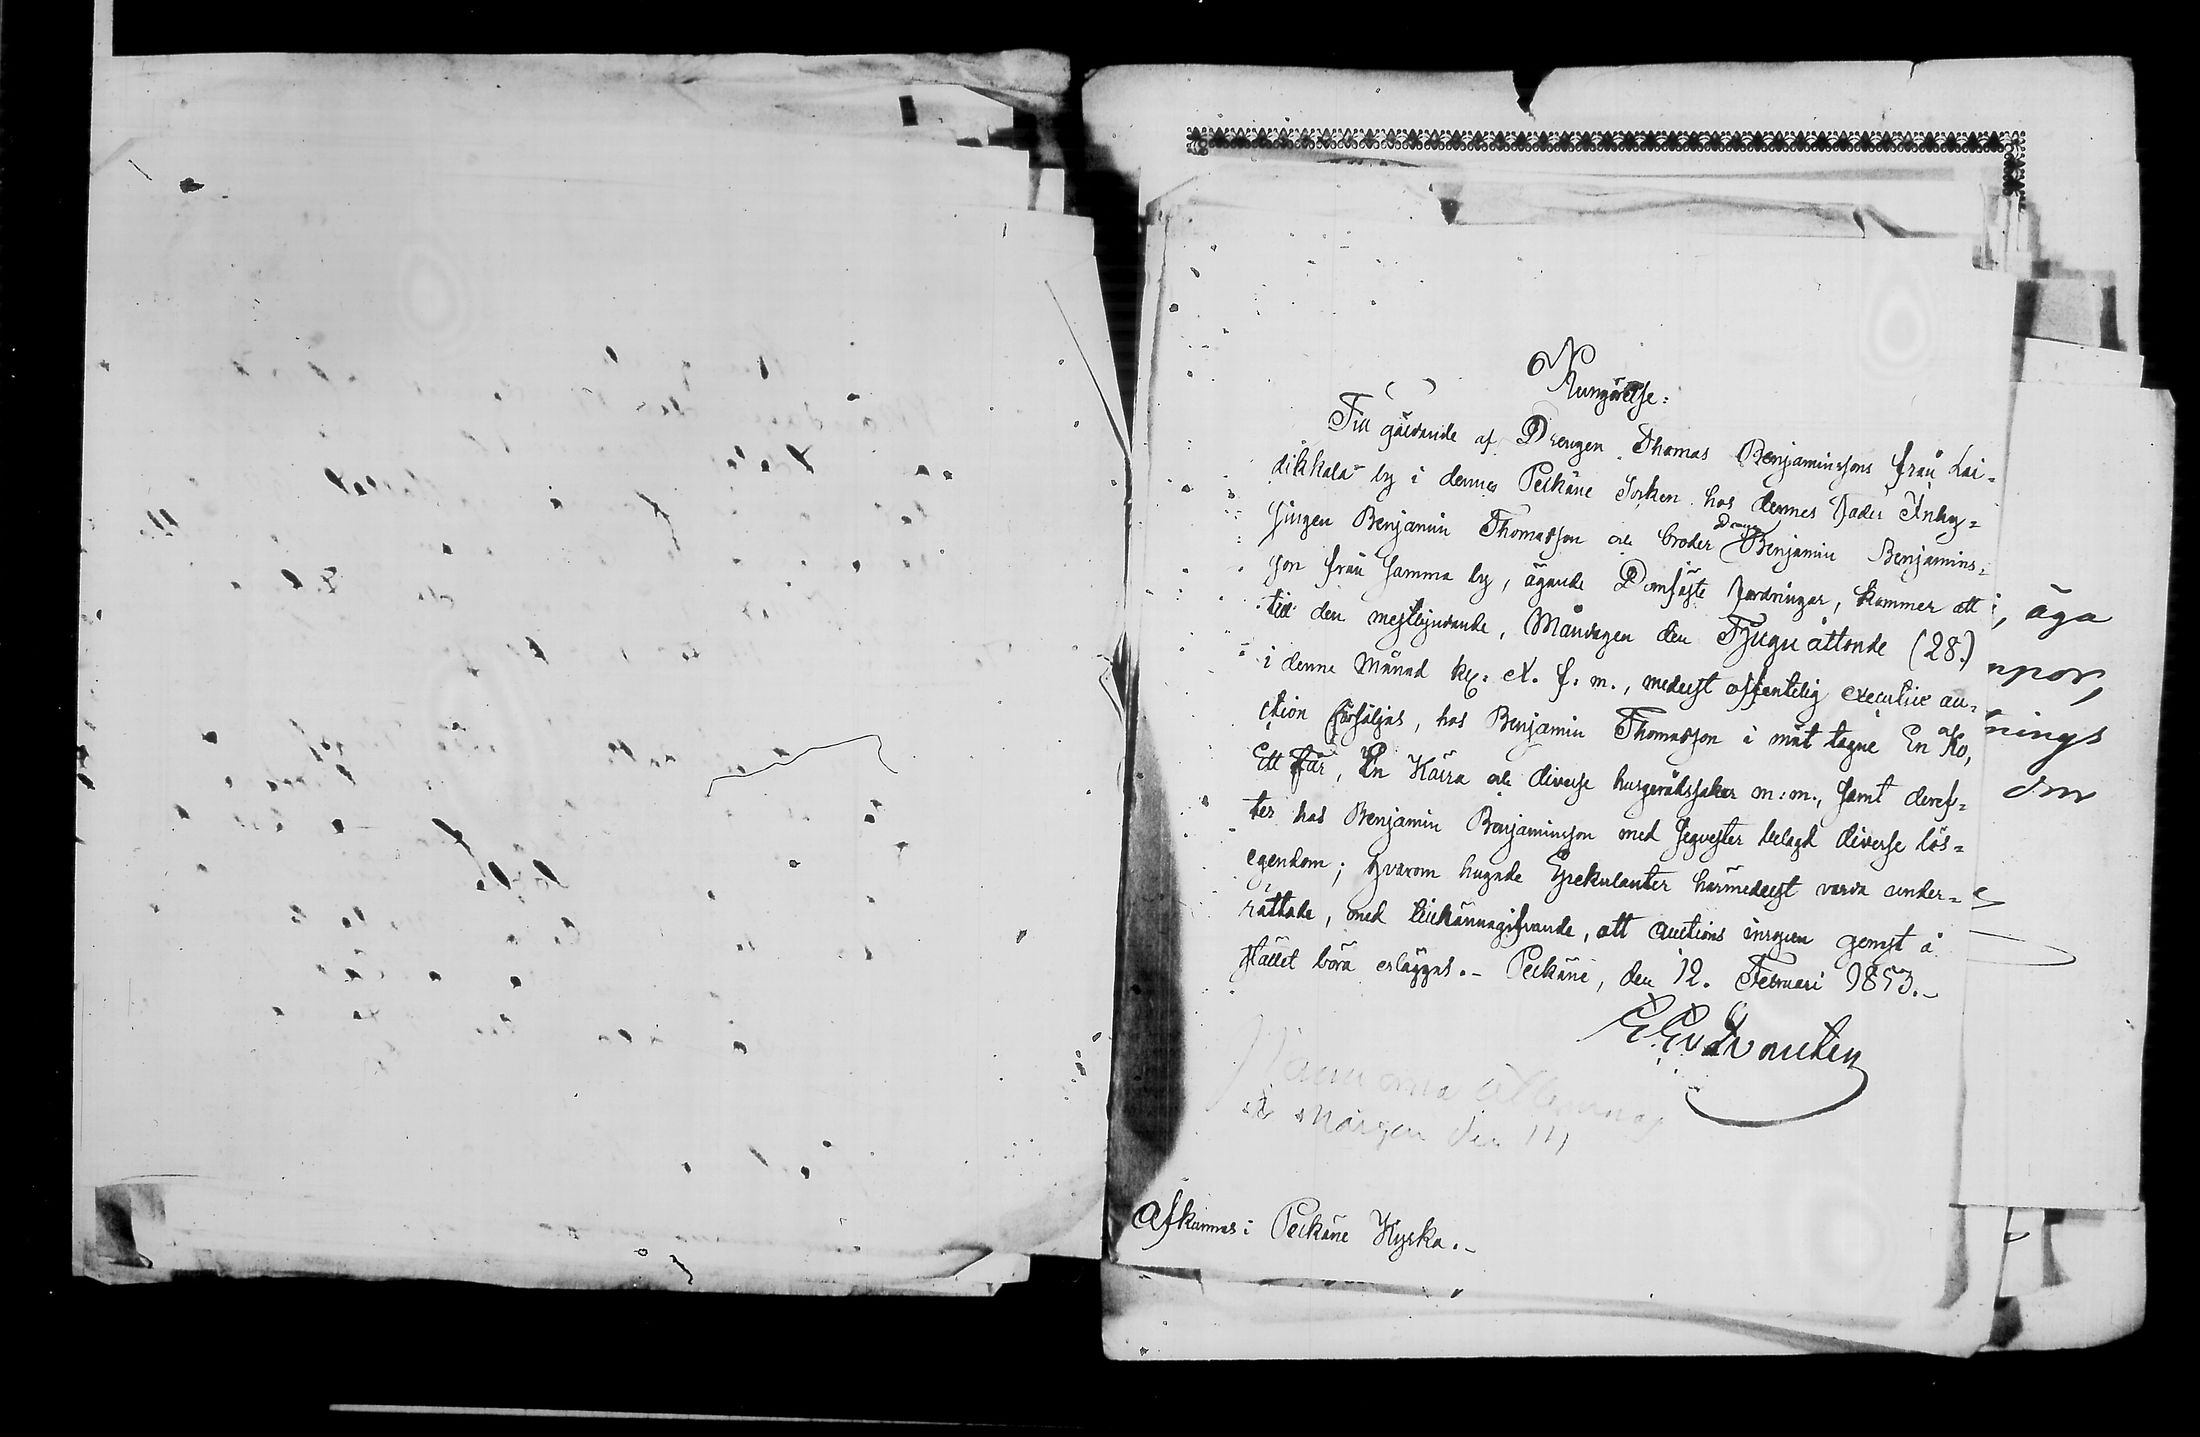 Kungörelse:
Till gäldande af Drengen Thomas Benjaminssons från Lai=
dikkala by i dennes Pelkäne Socken hos dennes fader Inhy=
singen Benjamin Thomasson och broder Dräng Benjamin Benjamins=
son från samma by, ägande Domfäste fordringar, kommer att
till den mestbjudande, Måndagen den Tjugu åttonde (28.)
i denne Månad kl: X. f: m., medelst offentelig executive au=
ction försäljas, hos Benjamin Thomasson i mät tagne En Ko,
Ett Får, En Kärra och diverse husgerådssaker m: m., samt deref=
ter hos Benjamin Benjaminsson med seqvester belagd diverse lös=
egendom; hvarom hugade Spekulanter härmedelst varda under=
rättade, med tillkännagifvande, att auctions inropen genast å
stället böra erläggas.- Pelkäne, den 12. Februari 1853.-
, äga
npor,
nings
den
i Morgon den
Afkunnas i Pelkäne Kyrka.-